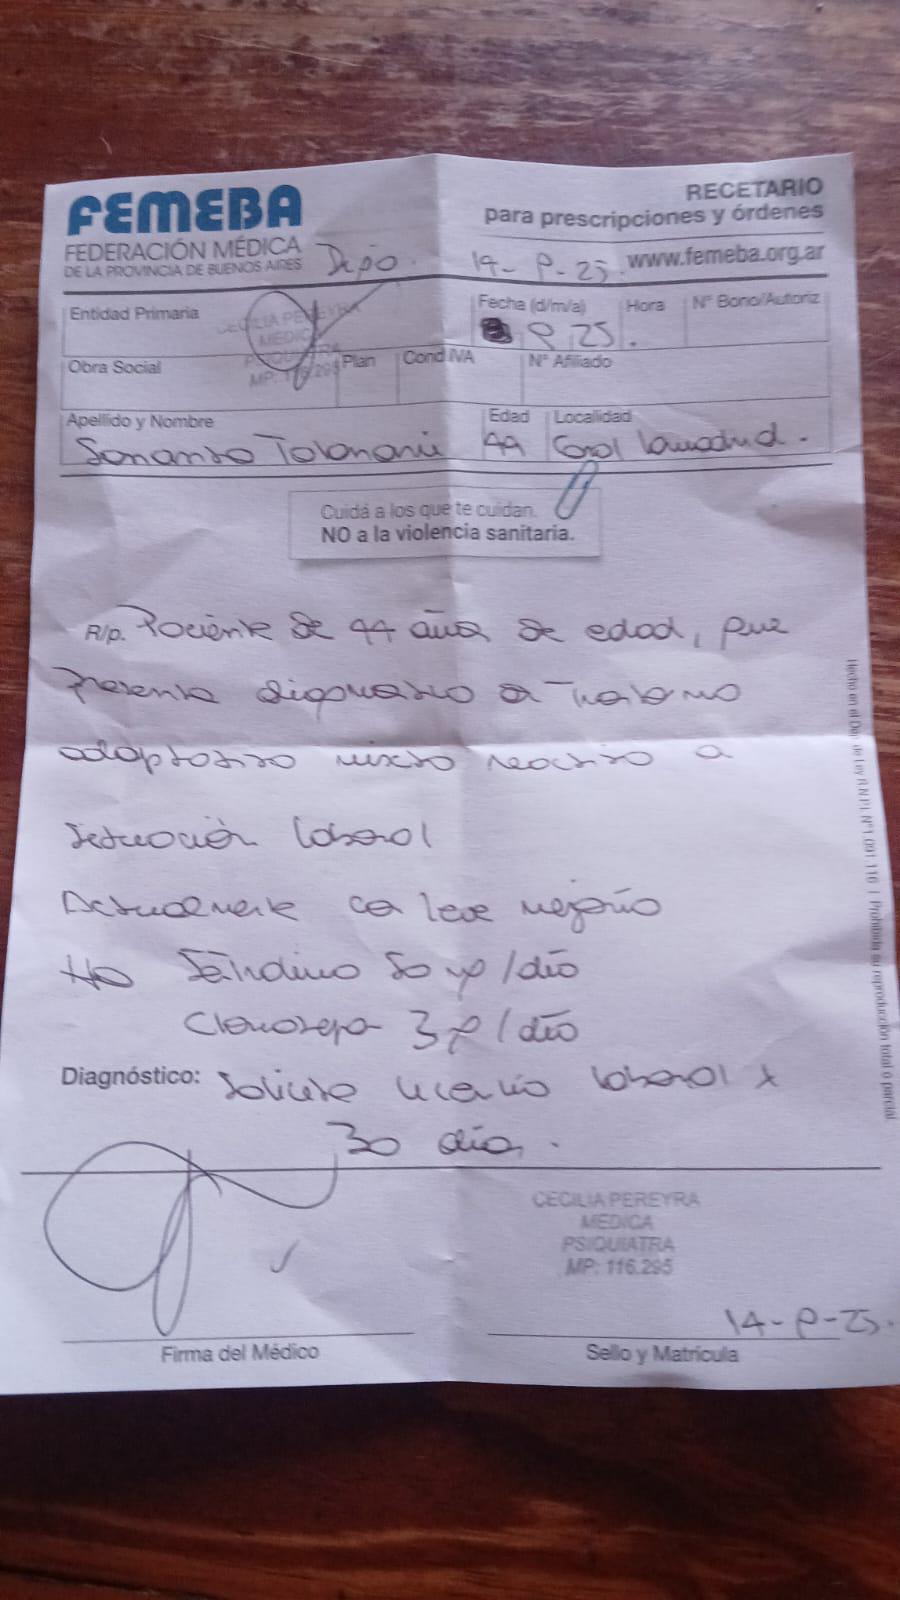 FEMEBA
FEDERACIÓN MÉDICA
DE LA PROVINCIA DE BUENOS AIRES
RECETARIO
para prescripciones y órdenes
www.femeba.org.ar
Dejo. 14-8-25.
Entidad Primaria
CECILIA PEREYRA
MEDICA
PSIQUIATRA
MP: 116.295
Fecha (d/m/a) Hora N° Bono/Autoriz
8 25.
Obra Social Plan Cond IVA N° Afiliado
Apellido y Nombre Edad Localidad
44 Gral Lamadrid.
Cuidá a los que te cuidan.
NO a la violencia sanitaria.
R/p. Paciente de 44 años de edad, que
presenta diagnostico de Trastorno
adaptativo mixto reactivo a
situación laboral
Actualmente con leve mejoría
50 mg/día
Clonazepam 3 mg/día
Diagnóstico: Solicito licencia laboral x
30 días.
CECILIA PEREYRA
MEDICA
PSIQUIATRA
MP: 116.295
14-8-25.
Firma del Médico Sello y Matrícula
Hecho en el Dep. de Ley R.N.P.I. N°1.091.116 | Prohibida su reproducción total o parcial